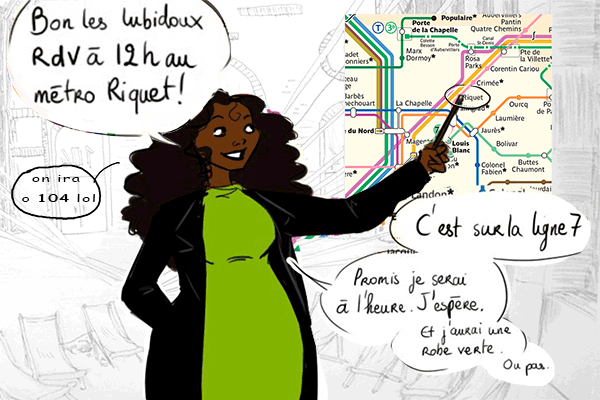 Bon les lubidoux
RdV à 12h au
métro Riquet!
on ira
o 104 lol
C'est sur la ligne 7
Promis je serai
à l'heure. J'espère.
Et j'aurai une
robe verte.
Ou pas.
Populaire★
Porte
de la Chapelle
Aubervilliers
Pantin
Quatre Chemins
T 3b
Colette
Besson
Porte
d'Aubervilliers
Canal
St-Denis
Marx
Dormoy★
Rosa
Parks
Pte de
la Villette
Corentin Cariou
Crimée★
Riquet
Barbès
La Chapelle
Ourcq
Laumière
du Nord
7
Jaurès★
Louis
Blanc
Bolivar
Colonel
Fabien★
Buttes
Chaumont